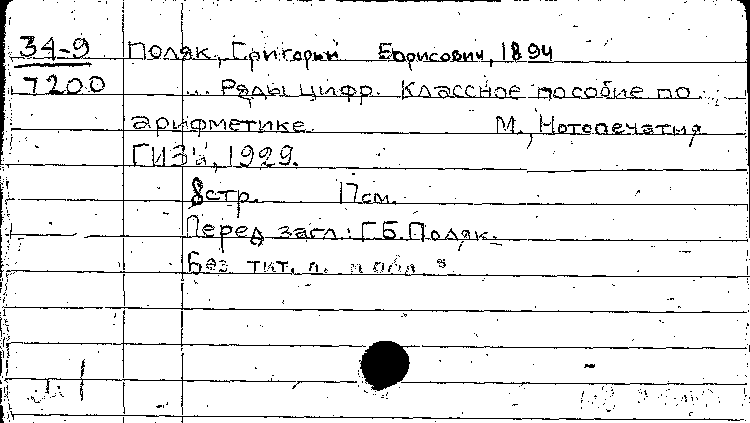 34-9 Поляк, Григорий Борисович, 1894
7200 ... Ряды цифр. Классное пособие по
арифметике. М., Нотопечатня
ГИЗ'а, 1929.
8 стр. 17 см.
Перед загл.: Г.Б. Поляк.
Без тит. л. и обл.